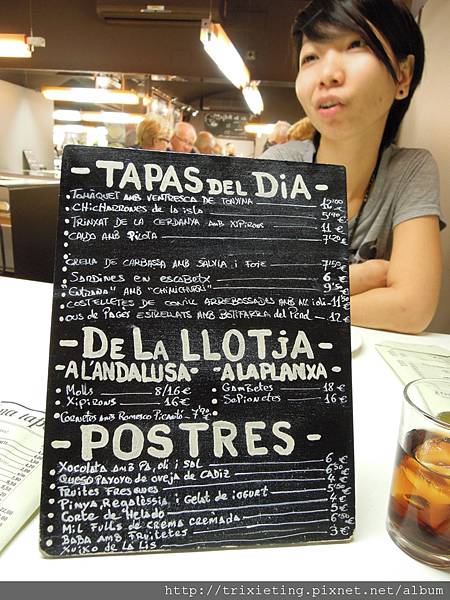 - TAPAS DEL DiA -
TOMÀQUET AMB VENTRESCA DE TONYINA 12'00
CHICHARRONES de la isla 5'40
TRINXAT DE LA CERDANYA AMB XIPIRONS 11 €
CALDO AMB PILOTA 7'20
CREMA DE CARBASSA AMB SALVIA i FOIE 7'50
SARDINES EN ESCABETX 6 €
AMB "CHIMICHURRI" 9 €
COSTELLETES DE CONILL ARREBOSSADES AMB ALL i OLI 11'50
OUS DE PAGÈS ESTRELLATS AMB BOTIFARRA del Perol 12 €
- DE LA LLOTJA -
- A L'ANDALUSA - - A LA PLANXA -
Molls 8/16 € GAMBETES 18 €
Xipirons 16 € Sepionetes 16 €
CORNETES AMB ROMESCO PICANTÓ 7'90
- POSTRES -
XOCOLATA AMB PA, OLI i SAL 6 €
QUESO PAYOYO DE OVEJA DE CADIZ 6'50
FRUITES FRESQUES 4 €
PINYA, REGALÈSSIA i GELAT DE IOGURT 5'50
CORTE DE HELADO 4 €
MIL FULLS DE CREMA CREMADA 5 €
BABA AMB FRUITETES 6'50
XUIXO DE LA LIS 3 €
http://trixieting.pixnet.net/album